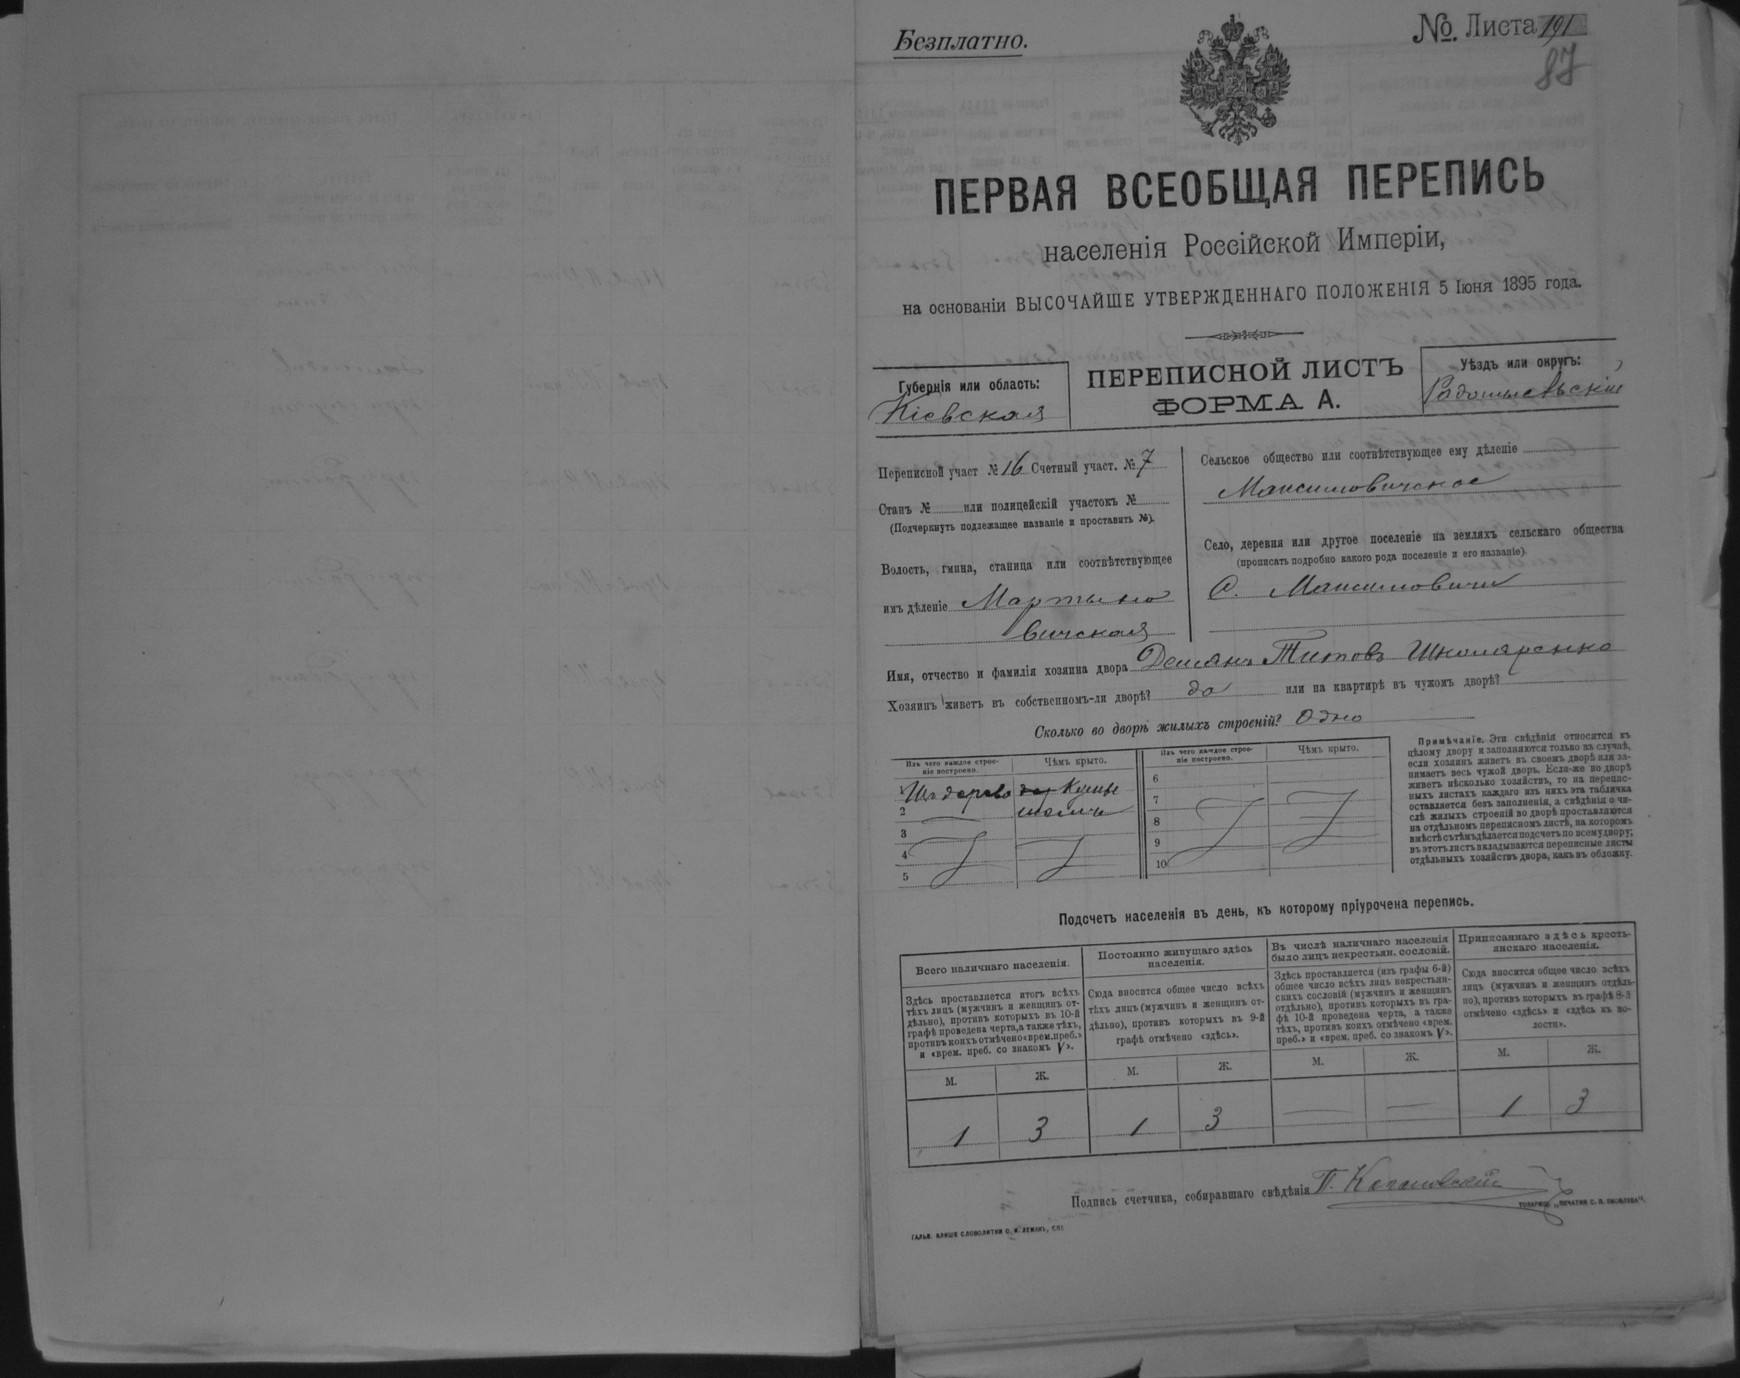 Безплатно.
№. Листа 191
87
ПЕРВАЯ ВСЕОБЩАЯ ПЕРЕПИСЬ
населенія Россійской Имперіи,
на основаніи ВЫСОЧАЙШЕ УТВЕРЖДЕННАГО ПОЛОЖЕНІЯ 5 Іюня 1895 года.
Губернія или область:
Кіевская
ПЕРЕПИСНОЙ ЛИСТЪ
ФОРМА А.
Уѣздъ или округъ:
Радомысльскій
Переписной участ № 16 Счетный участ. № 7
Станъ № или полицейскій участокъ №
(Подчеркнуть подлежащее названіе и проставить №).
Волость, гмина, станица или соотвѣтствующее
имъ дѣленіе Мартыно
вичская
Сельское общество или соотвѣтствующее ему дѣленіе
Максимовичское
Село, деревня или другое поселеніе на земляхъ сельскаго общества
(прописать подробно какого рода поселеніе и его названіе)
с. Максимовичи
Имя, отчество и фамилія хозяина двора Демянъ Титовъ Шкомаренко
Хозяинъ живетъ въ собственномъ-ли дворѣ? да или на квартирѣ въ чужомъ дворѣ?
Сколько во дворѣ жилыхъ строеній? Одно
Изъ чего каждое строе-
ніе построено.
Чѣмъ крыто.
1
2
3
4
5
Изъ чего каждое строе-
ніе построено.
Чѣмъ крыто.
6
7
8
9
10
Примѣчаніе. Эти свѣдѣнія относятся къ
цѣлому двору и заполняются только въ случаѣ,
если хозяинъ живетъ въ своемъ дворѣ или за-
нимаетъ весь чужой дворъ. Если-же во дворѣ
живетъ нѣсколько хозяйствъ, то на перепис-
ныхъ листахъ каждаго изъ нихъ эта табличка
оставляется безъ заполненія, а свѣдѣнія о чи-
слѣ жилыхъ строеній во дворѣ проставляются
на отдѣльномъ переписномъ листѣ, на которомъ
вмѣстѣ съ тѣмъ дѣлается подсчетъ по всему двору;
въ этотъ листъ вкладываются переписные листы
отдѣльныхъ хозяйствъ двора, какъ въ обложку.
Подсчетъ населенія въ день, къ которому пріурочена перепись.
Всего наличнаго населенія.
Здѣсь проставляется итогъ всѣхъ
тѣхъ лицъ (мужчинъ и женщинъ от-
дѣльно), противъ которыхъ въ 10-й
графѣ проведена черта, а также тѣхъ,
противъ коихъ отмѣчено «врем. преб.»
и «врем. преб. со знакомъ V».
М. Ж.
1 3
Постоянно живущаго здѣсь
населенія.
Сюда вносится общее число всѣхъ
тѣхъ лицъ (мужчинъ и женщинъ от-
дѣльно), противъ которыхъ въ 9-й
графѣ отмѣчено «здѣсь».
М. Ж.
1 3
Въ числѣ наличнаго населенія
было лицъ некрестьян. сословій.
Здѣсь проставляется (изъ графы 6-й)
общее число всѣхъ лицъ некрестьян-
скихъ сословій (мужчинъ и женщинъ
отдѣльно), противъ которыхъ въ гра-
фѣ 10-й проведена черта, а также
тѣхъ, противъ коихъ отмѣчено «врем.
преб.» и «врем. преб. со знакомъ V».
М. Ж.
— —
Приписаннаго здѣсь кресть-
янскаго населенія.
Сюда вносится общее число всѣхъ
лицъ (мужчинъ и женщинъ отдѣль-
но), противъ которыхъ въ графѣ 8-й
отмѣчено «здѣсь» и «здѣсь въ во-
лости».
М. Ж.
1 3
Подпись счетчика, собиравшаго свѣдѣнія
ГАЛЬВ. КЛИШЕ СЛОВОЛИТНИ О. И. ЛЕМАНЪ, СПБ.
ТОВАРИЩ. „ПЕЧАТНЯ С. П. ЯКОВЛЕВА".